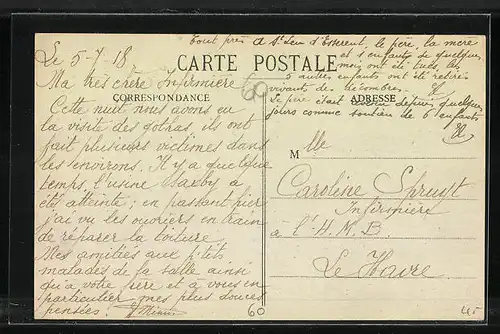 Tout près à St Leu d'Esserent, le père, la mère
et 2 enfants de quelques
mois ont été tués, les
5 autres enfants ont été retirés
vivants des décombres.
Le père était depuis quelques
jours comme soutien de 6 enfants
Le 5-7-18
CARTE POSTALE
Ma très chère Infirmière
60
CORRESPONDANCE
ADRESSE
Cette nuit nous avons eu
la visite des gothas, ils ont
fait plusieurs victimes dans
les environs. Il y a quelque
temps, l'usine a
été atteinte; en passant hier
j'ai vu les ouvriers en train
de réparer la toiture.
Mes amitiés aux p'tits
malades de la salle ainsi
qu'à votre père et à vous en
particulier mes plus douces
pensées.
M lle
Caroline
Infirmière
à l'H.M.B.
Le Havre
60
45